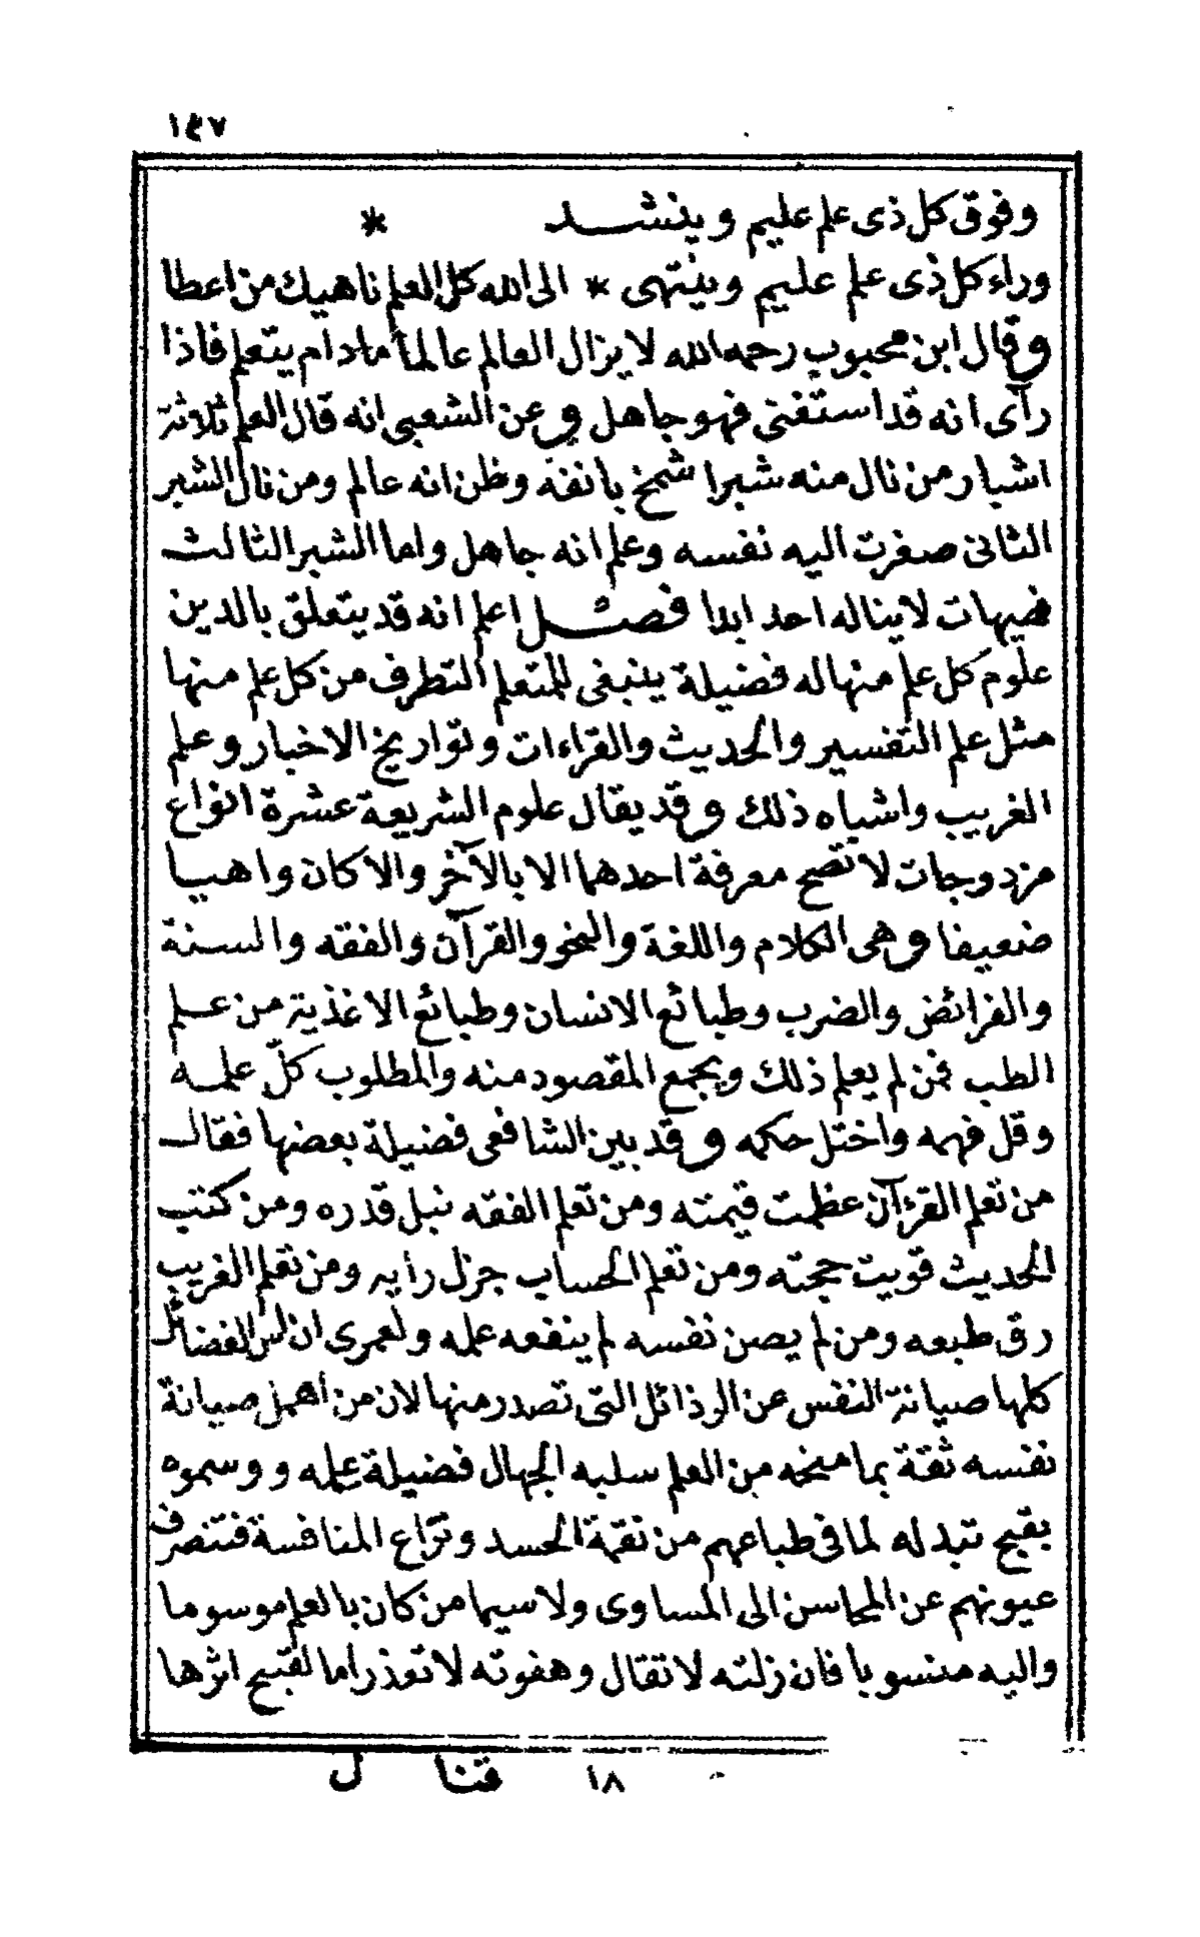 ١٣٧
وفوق كل ذى علم عليم وينشد *
وراء كل ذى علم عليم وينتهى * الى الله كل العلم ناهيك من اعطا
وقال ابن محبوب رحمه الله لا يزال العالم عالما ما دام يتعلم فاذا
رآى انه قد استغنى فهو جاهل وعن الشعبى انه قال العلم ثلاثة
اشبار من نال منه شبرا شمخ بانفه وظن انه عالم ومن نال الشبر
الثانى صغرت اليه نفسه وعلم انه جاهل واما الشبر الثالث
فهيهات لا يناله احد ابدا فصل اعلم انه قد يتعلق بالدين
علوم كل علم منها له فضيلة ينبغى للمتعلم التطرف من كل علم منها
مثل علم التفسير والحديث والقراءات وتواريخ الاخبار وعلم
الغريب واشباه ذلك وقد يقال علوم الشريعة عشرة انواع
مزدوجات لا تصح معرفة احدهما الا بالآخر والا كان واهيا
ضعيفا وهى الكلام واللغة والنحو والقرآن والفقه والسنة
والفرائض والضرب وطبائع الانسان وطبائع الاغذية من علم
الطب فمن لم يعلم ذلك ويجمع المقصود منه والمطلوب كلّ علمه
وقل فهمه واختل حكمه وقد بين الشافعى فضيلة بعضها فقال
من تعلم القرءآن عظمت قيمته ومن تعلم الفقه نبل قدره ومن كتب
الحديث قويت حجته ومن تعلم الحساب جزل رايه ومن تعلم الغريب
رق طبعه ومن لم يصن نفسه لم ينفعه علمه ولعمرى ان الفضائل
كلها صيانة النفس عن الرذائل التى تصدر منها لان من اهمل صيانة
نفسه ثقة بما منحه من العلم سلبه الجهال فضيلة علمه و وسموه
بقبيح تبدله لما فى طباعهم من نقمة الحسد ونزاع المنافسة فتنصرف
عيونهم عن المحاسن الى المساوى ولا سيما من كان بالعلم موسوما
واليه منسوبا فان زلته لا تقال وهفوته لا تعذر اما لقبيح اثرها
١٨ قنا ل